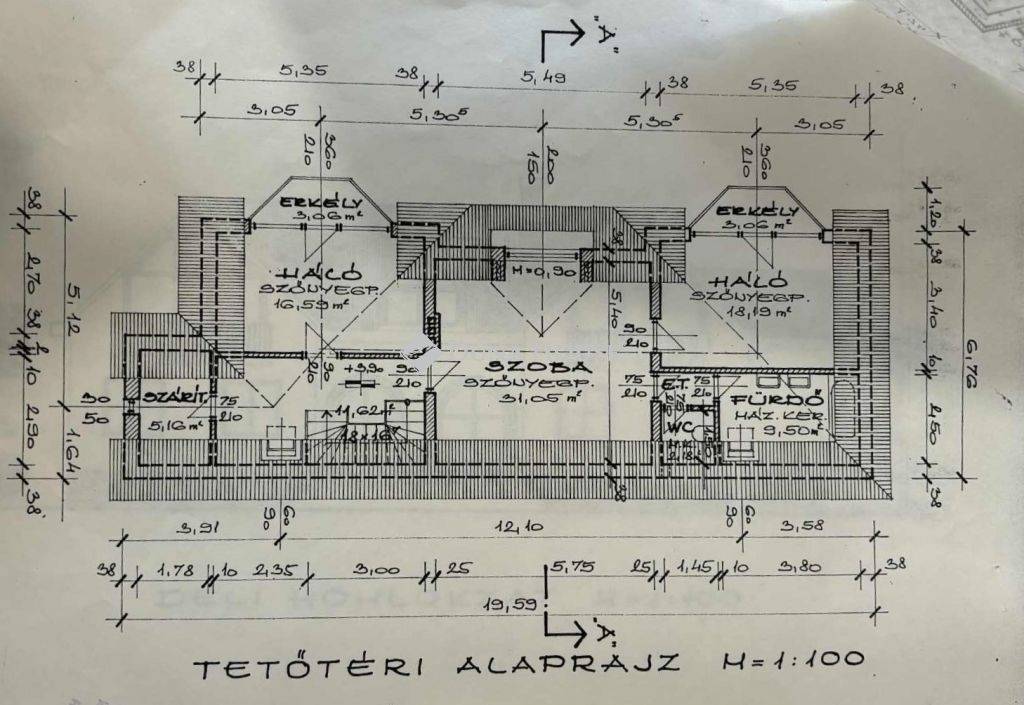 "A"
38 5,35 38 5,49 38 5,35 38
3,05 5,30⁵ 5,30⁵ 3,05
360
210
200
150
360
210
ERKÉLY
3,06 m²
ERKÉLY
3,06 m²
38
1,20
38 2,70 38 10 2,90 38
5,12 1,64
38 3,40 10 2,50 38
6,76
HÁLÓ
SZŐNYEGP.
16,59 m²
M=0,90
38
5,40
HÁLÓ
SZŐNYEGP.
18,19 m²
90
210
90
210
+3,90
90
210
SZOBA
SZŐNYEGP.
31,05 m²
SZÁRÍT.
5,16 m²
75
210
90
50
11,62 m²
18×16⁷
75
210
E.T.
75
210
WC
M.K.
FÜRDŐ
MÁZ. KER.
9,50 m²
38
60
90
60
90
3,91 12,10 3,58
38 1,78 10 2,35 3,00 25 5,75 25 1,45 10 3,80 38
19,59
"A"
TETŐTÉRI ALAPRAJZ M=1:100